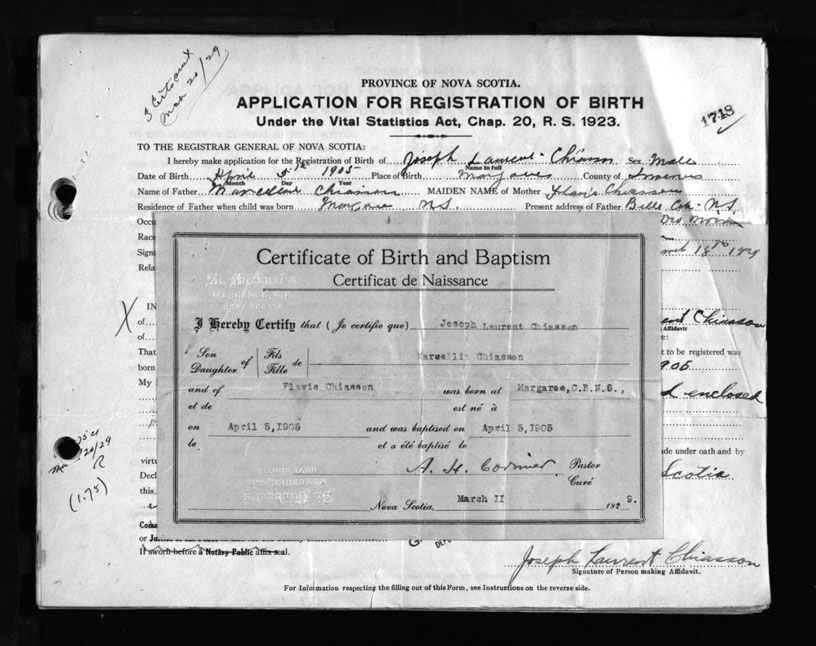 PROVINCE OF NOVA SCOTIA.
APPLICATION FOR REGISTRATION OF BIRTH
Under the Vital Statistics Act, Chap. 20, R. S. 1923.
1718
TO THE REGISTRAR GENERAL OF NOVA SCOTIA:
I hereby make application for the Registration of Birth of Joseph Laurent Chiasson Sex Male
Name in full
Date of Birth April 5th 1905 Place of Birth Margaree County of Inverness
Month Day Year
Name of Father Marcellin Chiasson MAIDEN NAME of Mother Chiasson
Residence of Father when child was born Margaree N.S. Present address of Father Belle N.S.
Occu
Race
Sign
Rela
Certificate of Birth and Baptism
Certificat de Naissance
St. Michael's
MARGAREE, C.B.
NOVA SCOTIA
I Hereby Certify that (Je certifie que) Joseph Laurent Chiasson
Son Daughter of Fils Fille de Marwellin Chiasson
and of Flavie Chiasson was born at Margaree, C.B.N.S.,
et de est né à
on April 5, 1905 and was baptised on April 5, 1905
le et a été baptisé le
A. H. Cormier Pastor
Curé
Nova Scotia, March II 1929.
IN
of
of
Chiasson
Affidavit
That t to be registered was
born 1905
My enclosed
ade under oath and by
virtu
Decl Scotia
this
or
If sworn before a Notary Public affix seal.
Joseph Laurent Chiasson
Signature of Person making Affidavit.
For Information respecting the filling out of this Form, see Instructions on the reverse side.
(1.75)